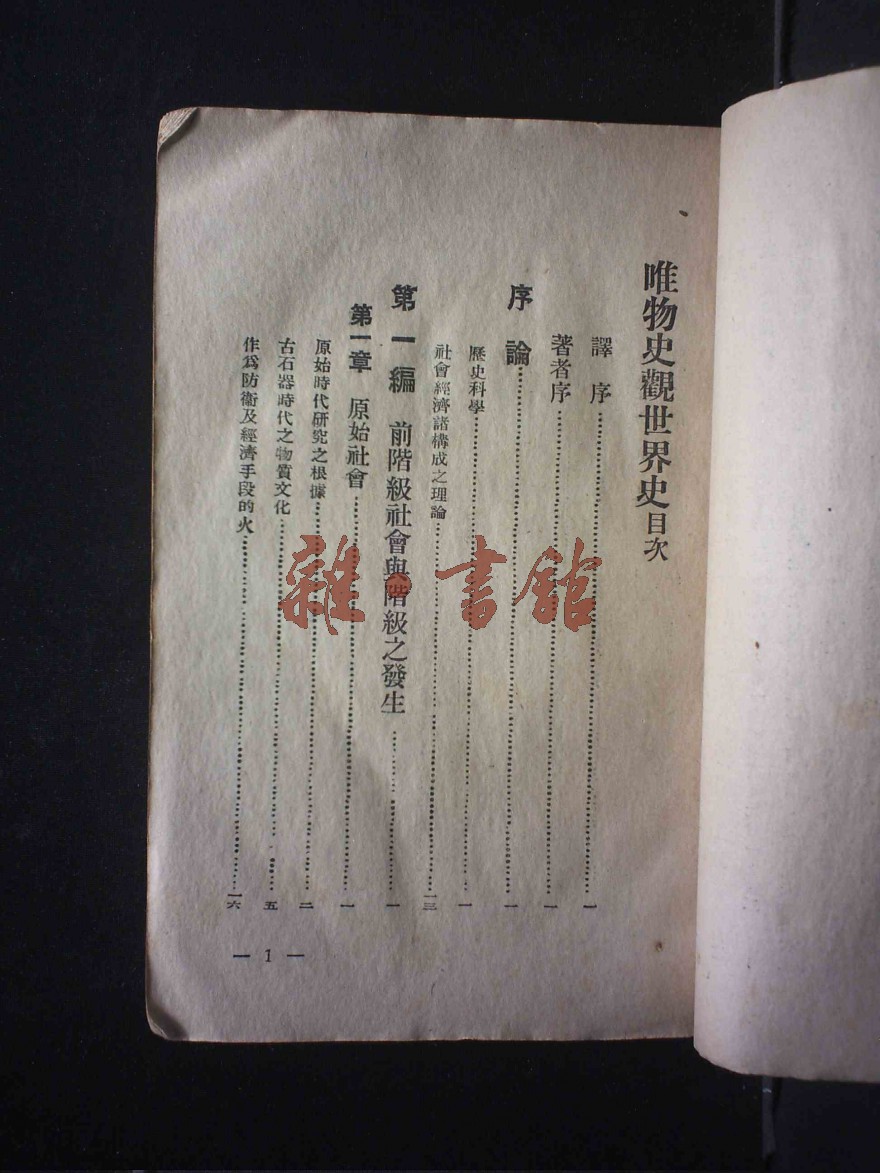 唯物史觀世界史目次
譯序……一
著者序……一
序論……一
歷史科學……一
社會經濟諸構成之理論……一三
第一編 前階級社會與階級之發生……一
第一章 原始社會……一
原始時代研究之根據……二
古石器時代之物質文化……五
作爲防衛及經濟手段的火……一六
— 1 —
雜·書館